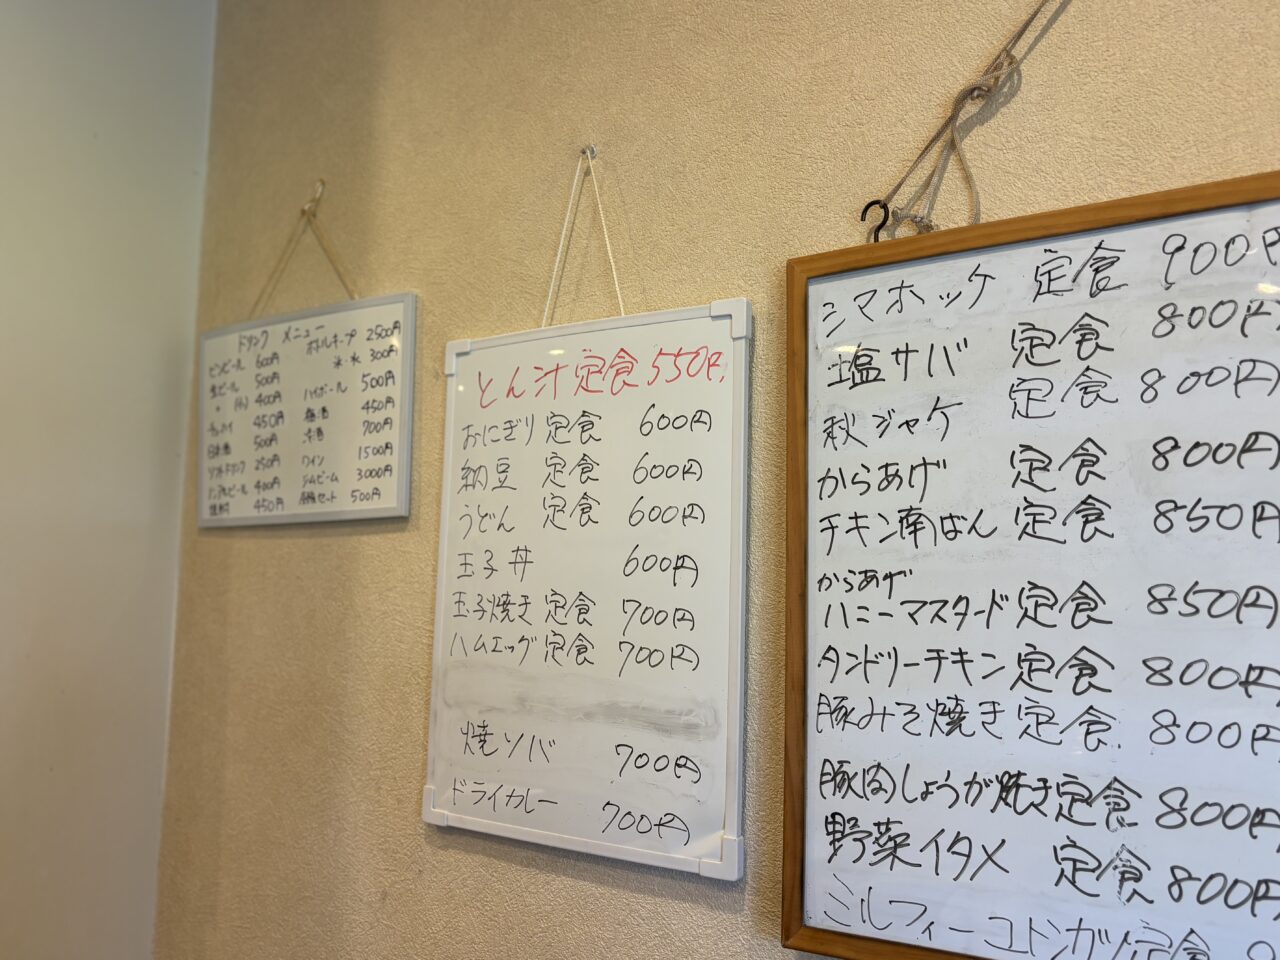 ドリンク メニュー
ビンビール 600円
生ビール 500円
〃 (小) 400円
450円
日本酒 500円
ソフトドリンク 250円
ノンアルビール 400円
450円
ボトルキープ 2500円
氷・水 300円
ハイボール 500円
梅酒 450円
700円
ワイン 1500円
ジムビーム 3000円
セット 500円
とん汁定食550円
おにぎり 定食 600円
納豆 定食 600円
うどん 定食 600円
玉子丼 600円
玉子焼き 定食 700円
ハムエッグ 定食 700円
焼ソバ 700円
ドライカレー 700円
シマホッケ 定食 900円
塩サバ 定食 800円
秋ジャケ 定食 800円
からあげ 定食 800円
チキン南ばん 定食 850円
からあげ
ハニーマスタード定食 850円
タンドリーチキン定食 800円
豚みそ焼き定食 800円
豚肉しょうが焼き定食 800円
野菜イタメ 定食 800円
ミルフィーユトンカツ定食